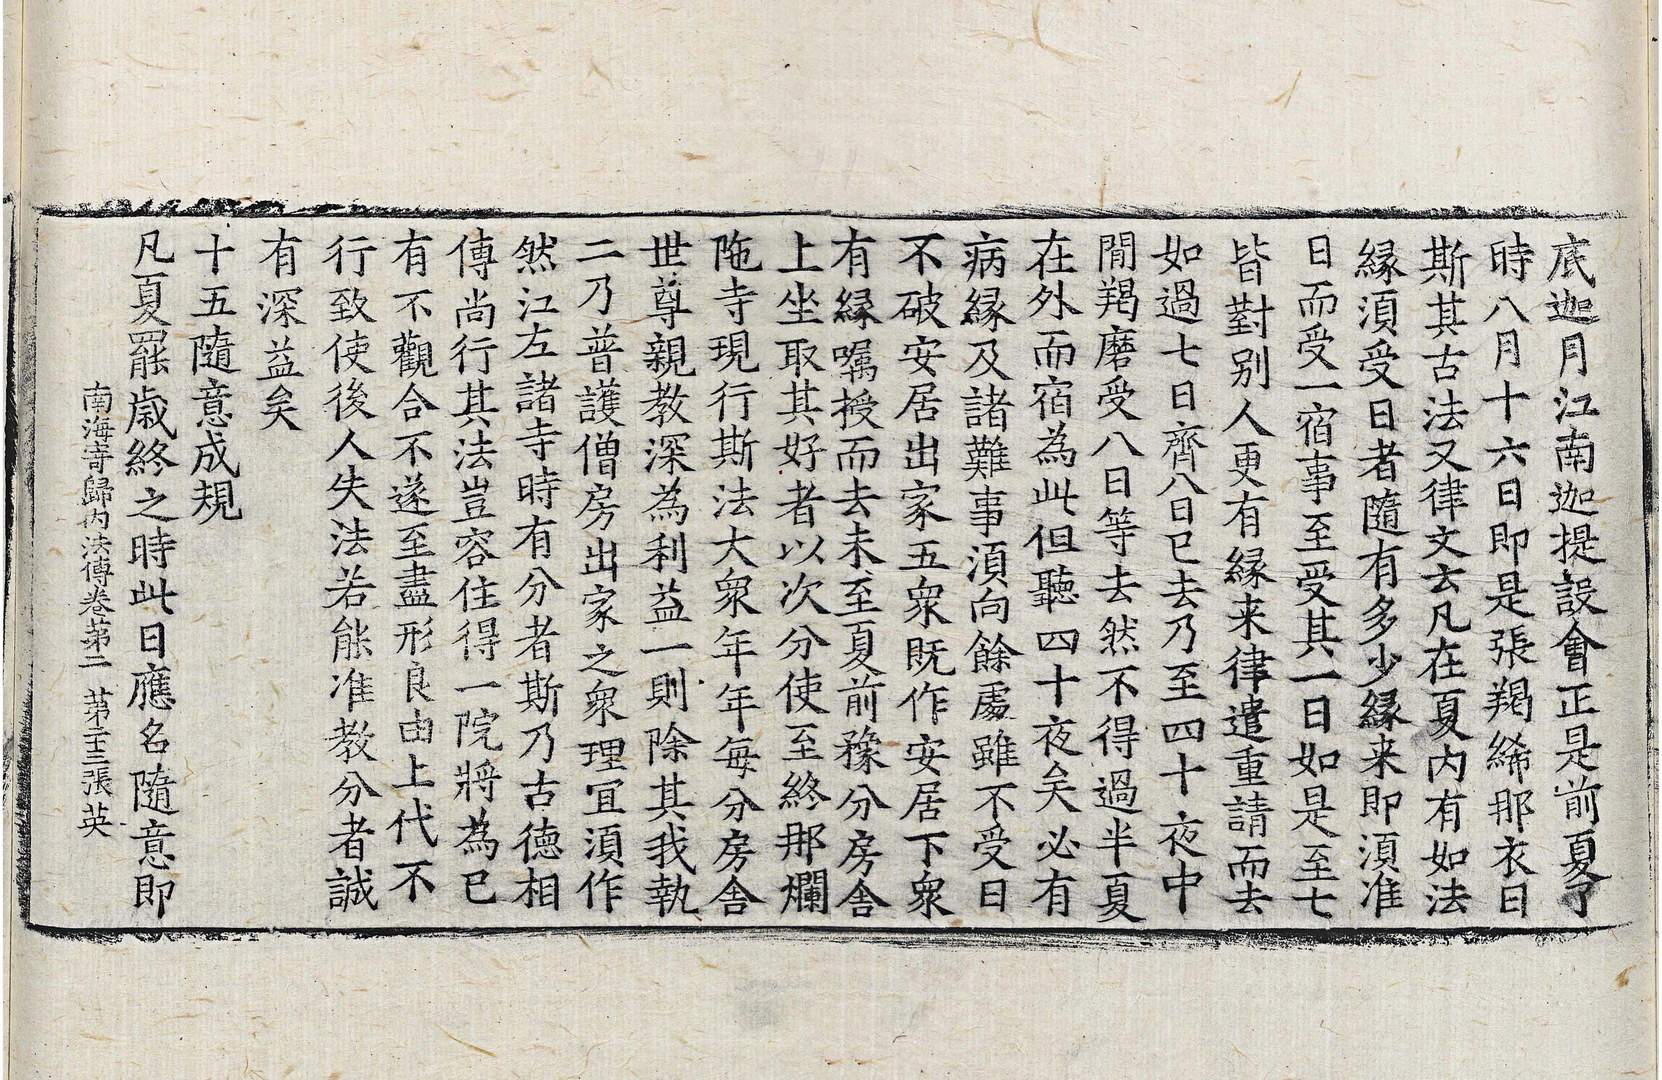 底迦月江南迦提設會正是前夏了
時八月十六日即是張羯絺那衣日
斯其古法又律文云凡在夏内有如法
縁須受日者隨有多少縁来即須准
日而受一宿事至受其一日如是至七
皆對别人更有縁来律遣重請而去
如過七日齊八日已去乃至四十夜中
閒羯磨受八日等去然不得過半夏
在外而宿為此但聽四十夜矣必有
病縁及諸難事須向餘處雖不受日
不破安居出家五衆既作安居下衆
有縁囑授而去未至夏前豫分房舎
上坐取其好者以次分使至終那爛
陁寺現行斯法大衆年年每分房舎
世尊親教深為利益一則除其我執
二乃普護僧房出家之衆理宜須作
然江左諸寺時有分者斯乃古德相
傳尚行其法豈容住得一院將為已
有不觀合不遂至盡形良由上代不
行致使後人失法若能准教分者誠
有深益矣
十五隨意成規
凡夏罷歲終之時此日應名隨意即
南海寄歸内法傳卷苐二　苐二十三張　英